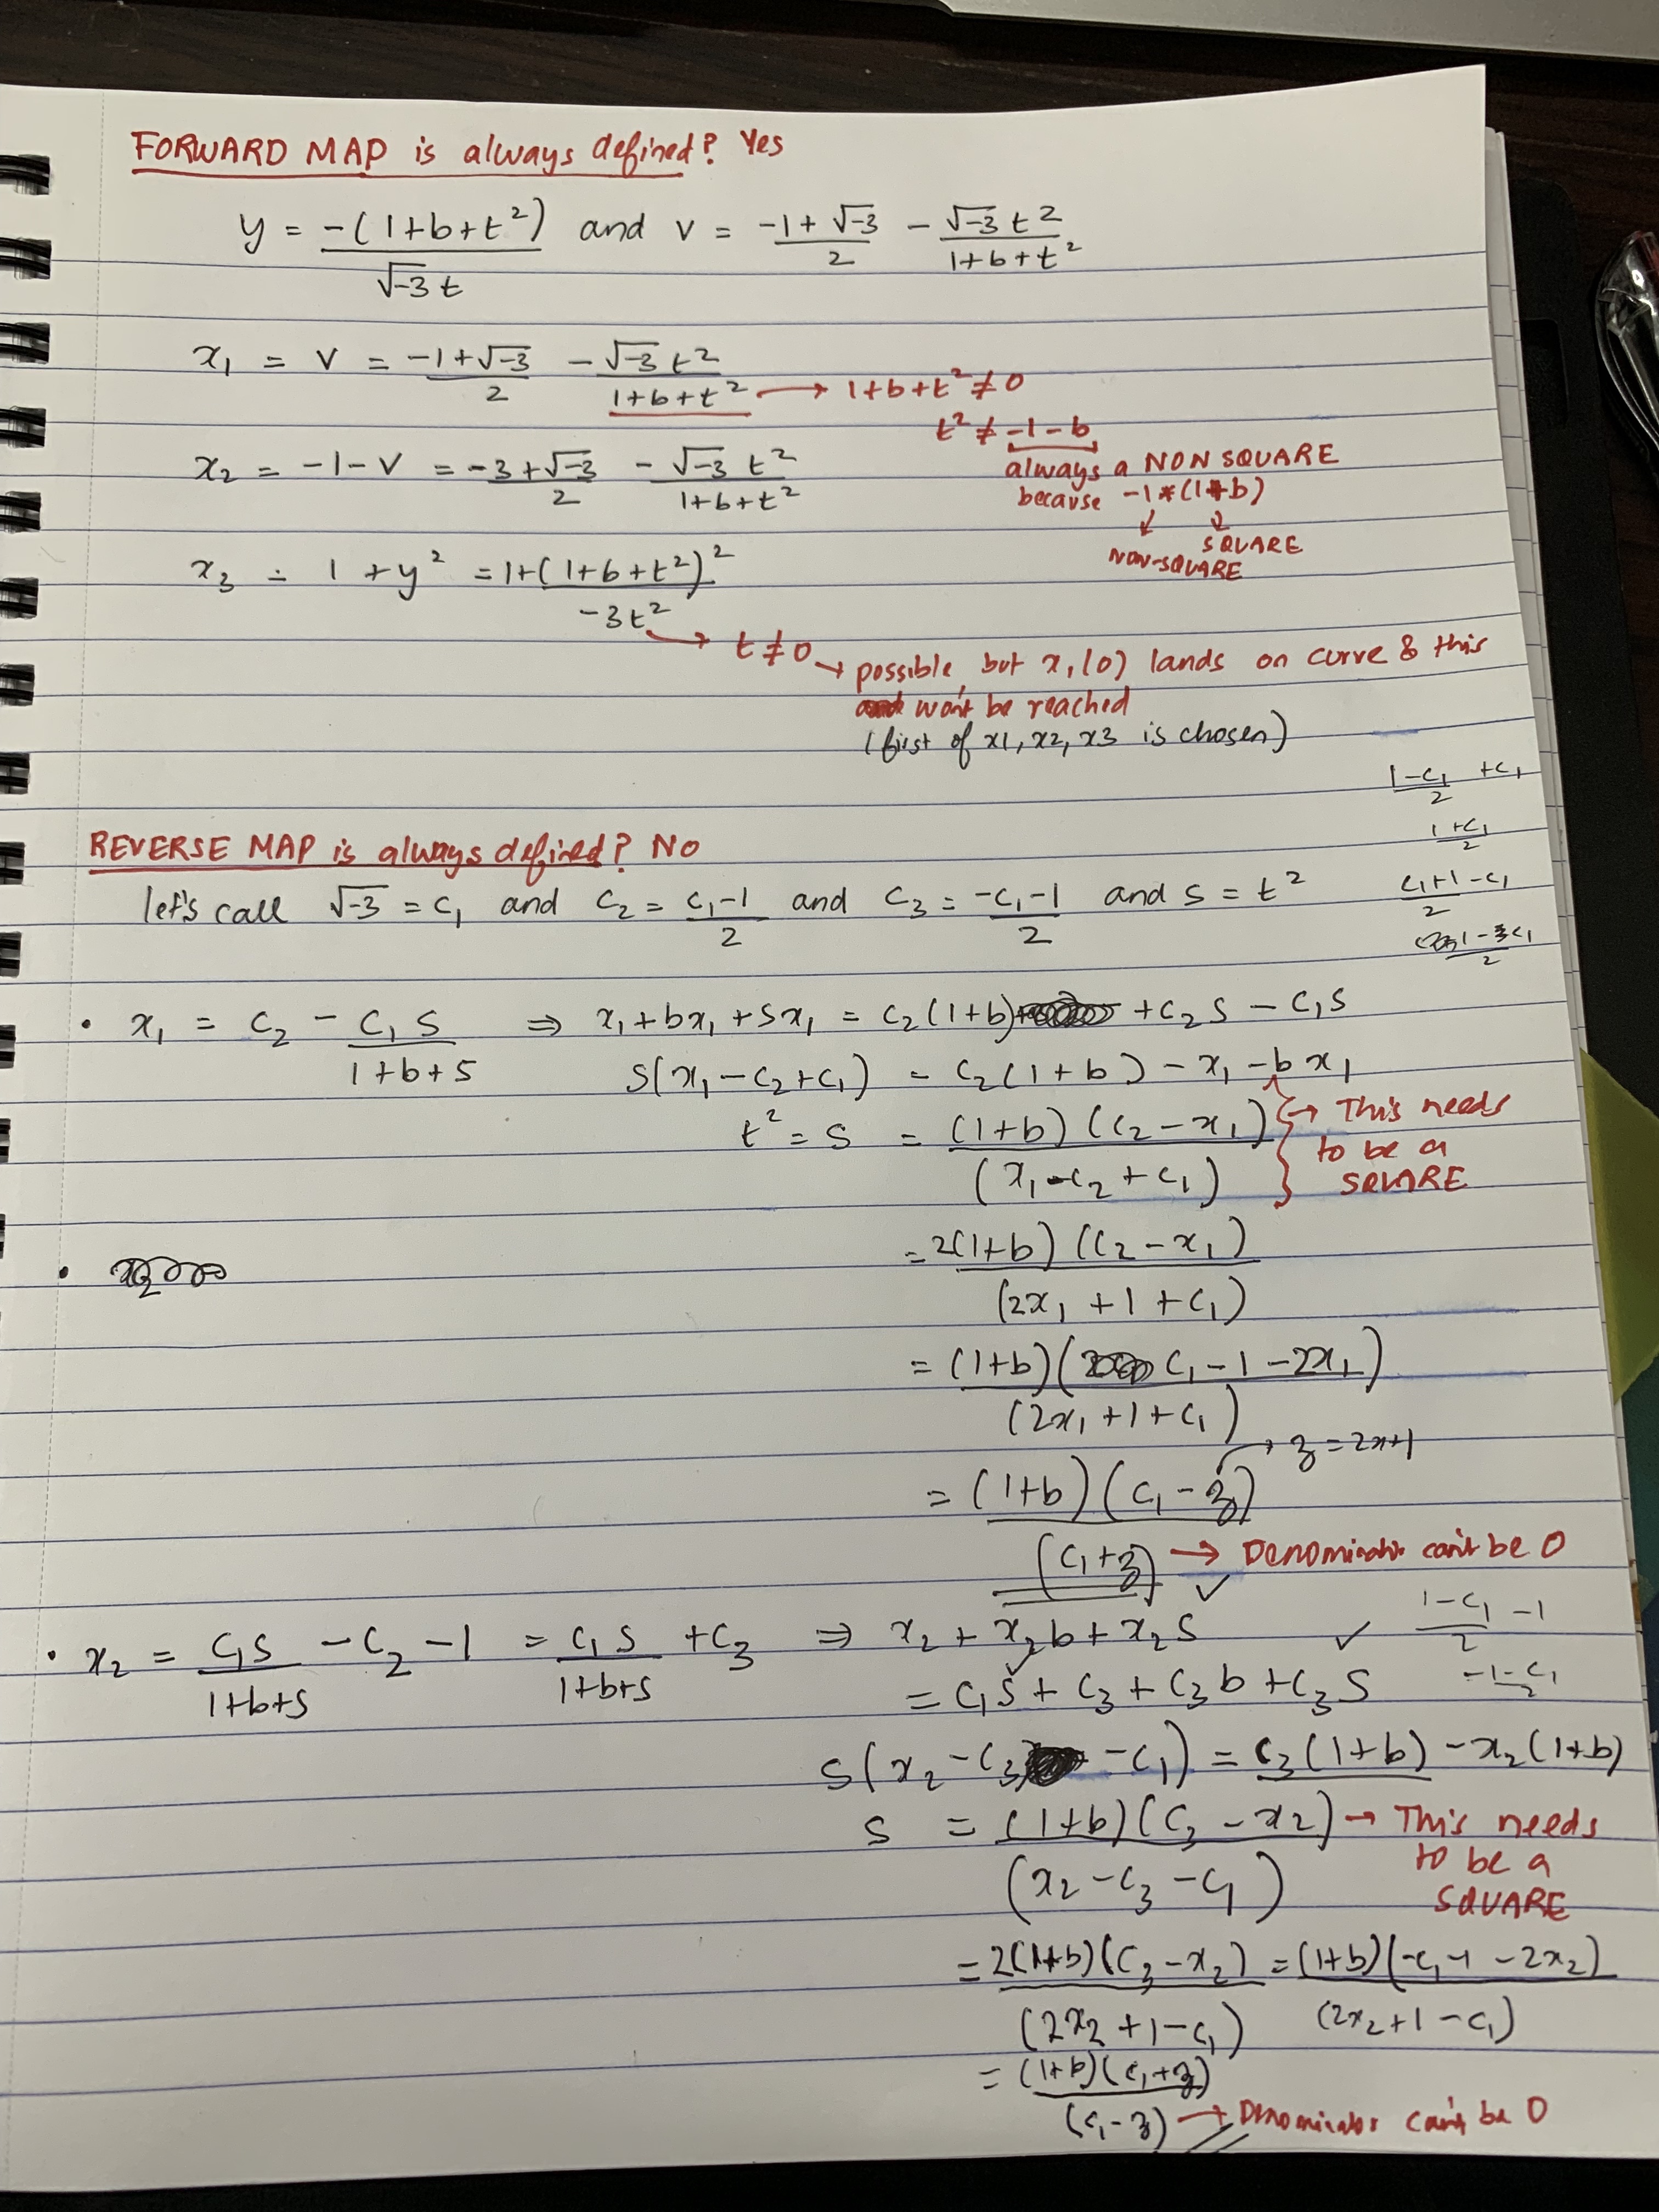 FORWARD MAP is always defined? Yes
y = -(1+b+t²) / √-3 t and v = (-1+√-3)/2 - √-3 t²/(1+b+t²)
x₁ = v = (-1+√-3)/2 - √-3 t²/(1+b+t²) → 1+b+t² ≠ 0
t² ≠ -1-b
always a NON SQUARE
because -1*(1+b)
NON-SQUARE SQUARE
x₂ = -1-v = (-3+√-3)/2 - √-3 t²/(1+b+t²)
x₃ = 1+y² = 1+(1+b+t²)²/(-3t²)
→ t ≠ 0 → possible, but x₁(0) lands on curve & this
won't be reached
(first of x1, x2, x3 is chosen)
(1-c₁)/2 + c₁
(1+c₁)/2
REVERSE MAP is always defined? No
let's call √-3 = c₁ and c₂ = (c₁-1)/2 and c₃ = (-c₁-1)/2 and s = t²
(c₁+1-c₁)/2
• x₁ = c₂ - c₁s/(1+b+s) ⇒ x₁+bx₁+sx₁ = c₂(1+b) + c₂s - c₁s
s(x₁-c₂+c₁) = c₂(1+b) - x₁ - bx₁
t² = s = (1+b)(c₂-x₁)/(x₁-c₂+c₁) } → This needs
to be a
SQUARE
= 2(1+b)(c₂-x₁)/(2x₁+1+c₁)
= (1+b)(c₁-1-2x₁)/(2x₁+1+c₁)
→ z = 2x+1
= (1+b)(c₁-z)/(c₁+z) → Denominator can't be 0 ✓
• x₂ = c₁s/(1+b+s) - c₂ - 1 = c₁s/(1+b+s) + c₃ ⇒ x₂+x₂b+x₂s ✓
(1-c₁)/2 - 1
(-1-c₁)/2
= c₁s + c₃ + c₃b + c₃s
s(x₂-c₃-c₁) = c₃(1+b) - x₂(1+b)
s = (1+b)(c₃-x₂)/(x₂-c₃-c₁) → This needs
to be a
SQUARE
= 2(1+b)(c₃-x₂)/(2x₂+1-c₁) = (1+b)(-c₁-1-2x₂)/(2x₂+1-c₁)
= (1+b)(c₁+z)/(c₁-z) → Denominator can't be 0